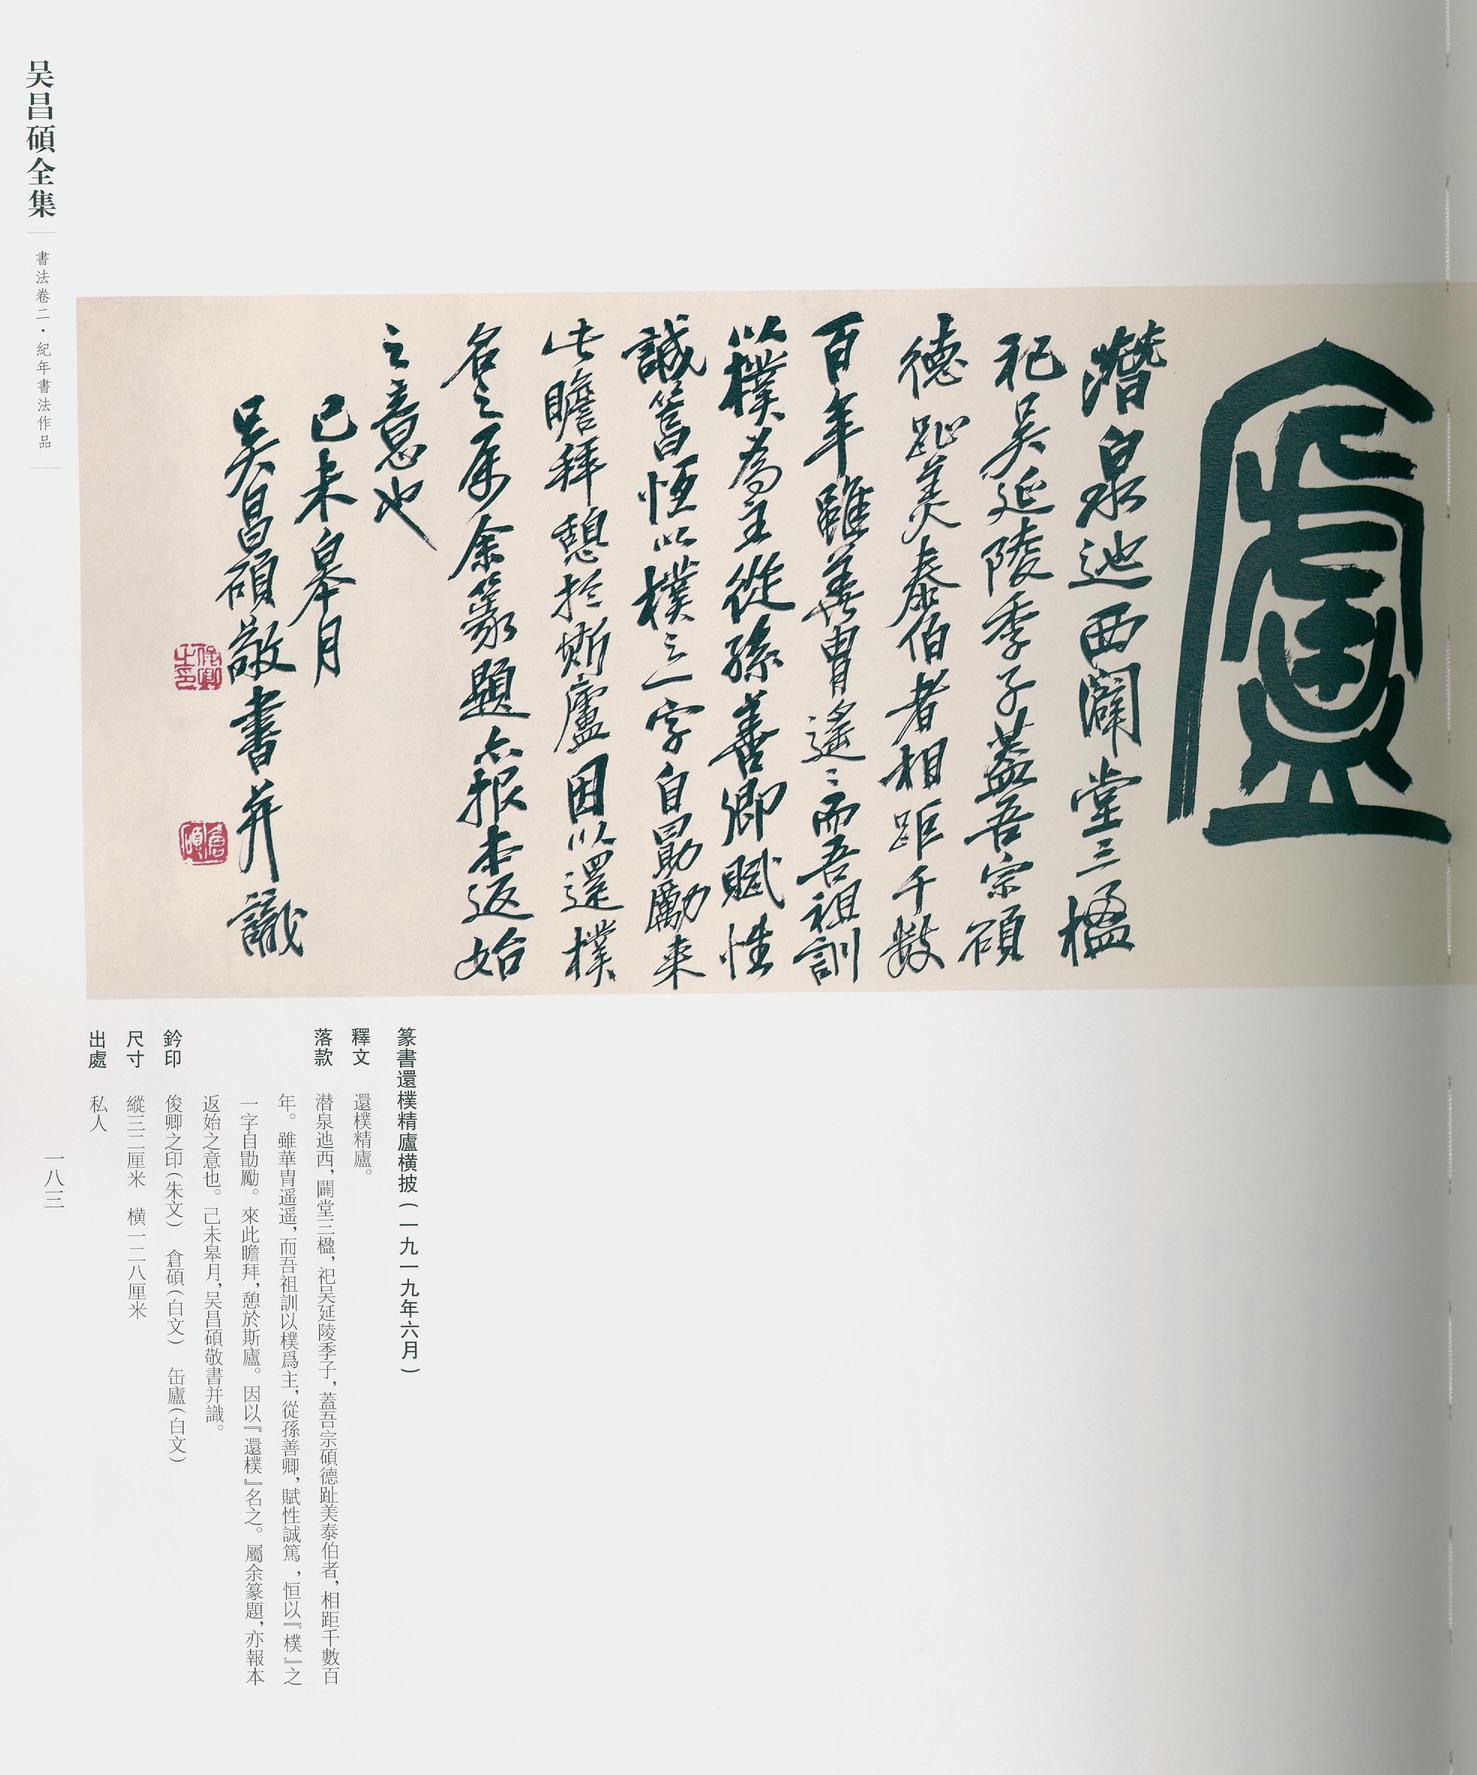 盧
潛泉迆西闢堂三楹
祀吴延陵季子蓋吾宗碩
德趾美泰伯者相距千數
百年雖華冑遙〻而吾祖訓
以樸為主從孫善卿賦性
誠篤恆以樸之一字自勖勵來
此瞻拜憩於斯廬因以還樸
名之属余篆題亦報本返始
之意也
己未皋月
吴昌碩敬書并識
俊卿之印
倉碩
篆書還樸精廬横披(一九一九年六月)
釋文 還樸精廬。
落款 潜泉迆西,闢堂三楹,祀吴延陵季子,蓋吾宗碩德趾美泰伯者,相距千數百
年。雖華胄遥遥,而吾祖訓以樸爲主,從孫善卿,賦性誠篤,恒以『樸』之
一字自勖勵。來此瞻拜,憩於斯廬。因以『還樸』名之。屬余篆題,亦報本
返始之意也。己未皋月,吴昌碩敬書并識。
鈐印 俊卿之印(朱文) 倉碩(白文) 缶廬(白文)
尺寸 縱三二厘米 横一二八厘米
出處 私人
吴昌碩全集
書法卷二·紀年書法作品
一八三